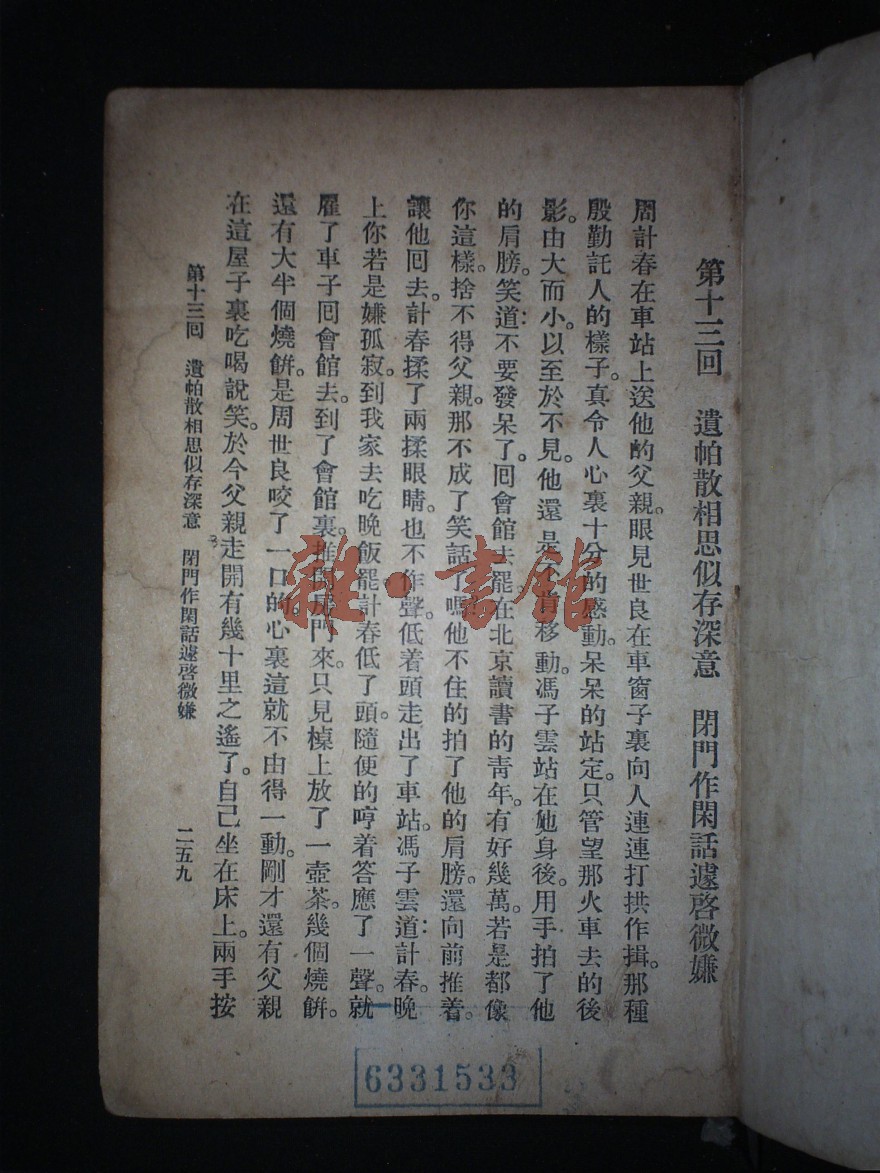 第十三回　遺帕散相思似存深意　閉門作閑話遽啓微嫌
周計春在車站上送他的父親。眼見世良在車窗子裏向人連連打拱作揖。那種
殷勤託人的樣子。真令人心裏十分的感動。呆呆的站定。只管望那火車去的後
影。由大而小。以至於不見。他還是不肯移動。馮子雲站在他身後。用手拍了他
的肩膀。笑道：不要發呆了。囘會館去罷在北京讀書的靑年。有好幾萬。若是都像
你這樣。捨不得父親。那不成了笑話了嗎。他不住的拍了他的肩膀。還向前推着。
讓他囘去。計春揉了兩揉眼睛。也不作聲。低着頭走出了車站。馮子雲道：計春。晚
上你若是嫌孤寂。到我家去吃晚飯罷。計春低了頭。隨便的哼着答應了一聲。就
雇了車子囘會館去。到了會館裏。推開房門來。只見棹上放了一壺茶。幾個燒餅。
還有大半個燒餅。是周世良咬了一口的。心裏這就不由得一動。剛才還有父親
在這屋子裏吃喝說笑。於今父親走開有幾十里之遙了。自己坐在床上。兩手按
第十三回　遺帕散相思似存深意　閉門作閑話遽啓微嫌　二五九
雜·書館
6331533